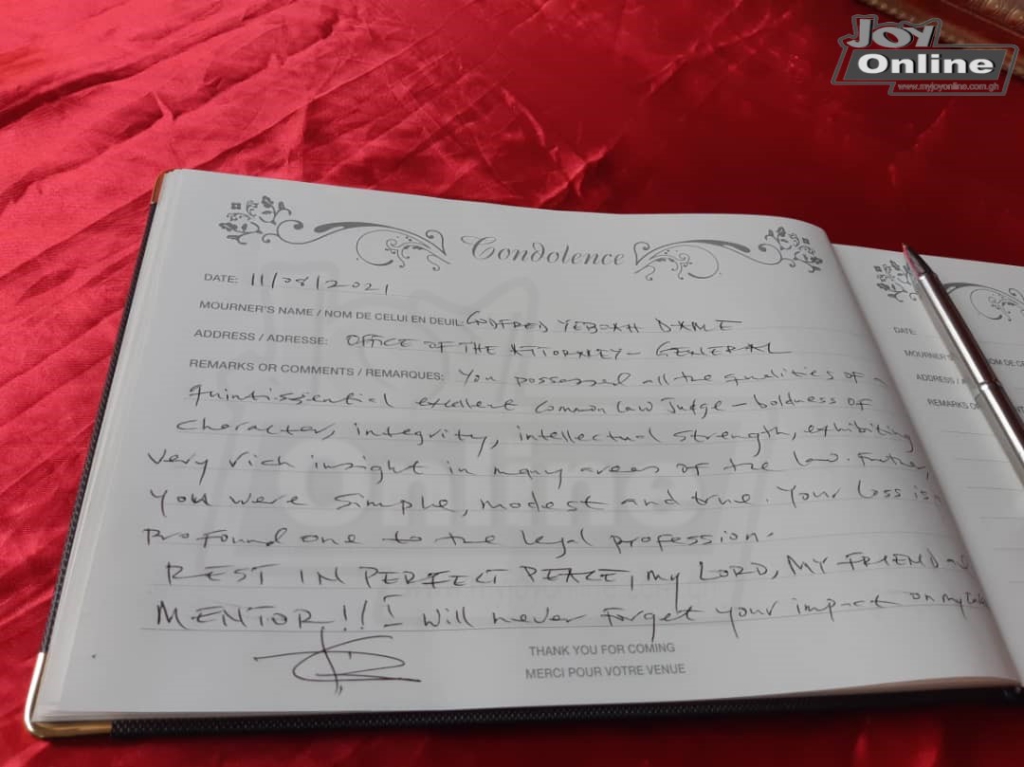 Joy
Online
www.myjoyonline.com.gh
Condolence
DATE: 11/08/2021
MOURNER'S NAME / NOM DE CELUI EN DEUIL: GODFRED YEBOAH DAME
ADDRESS / ADRESSE: OFFICE OF THE ATTORNEY - GENERAL
REMARKS OR COMMENTS / REMARQUES: You possessed all the qualities of a
quintissential excellent common law Judge - boldness of
character, integrity, intellectual strength, exhibiting
very rich insight in many areas of the law. Further,
you were simple, modest and true. Your loss is
profound one to the legal profession.
REST IN PERFECT PEACE, my LORD, MY FRIEND
MENTOR!! I will never forget your impact on my
THANK YOU FOR COMING
MERCI POUR VOTRE VENUE
DATE:
MOURNER'S
ADDRESS /
REMARKS